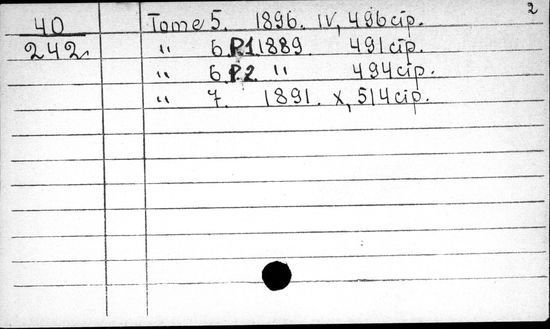 2
40
242.
Tome 5. 1896. IV, 496 cip.
" 6.P.1. 1889. 491 cip.
" 6.P.2. " 494 cip.
" 7. 1891. X, 514 cip.